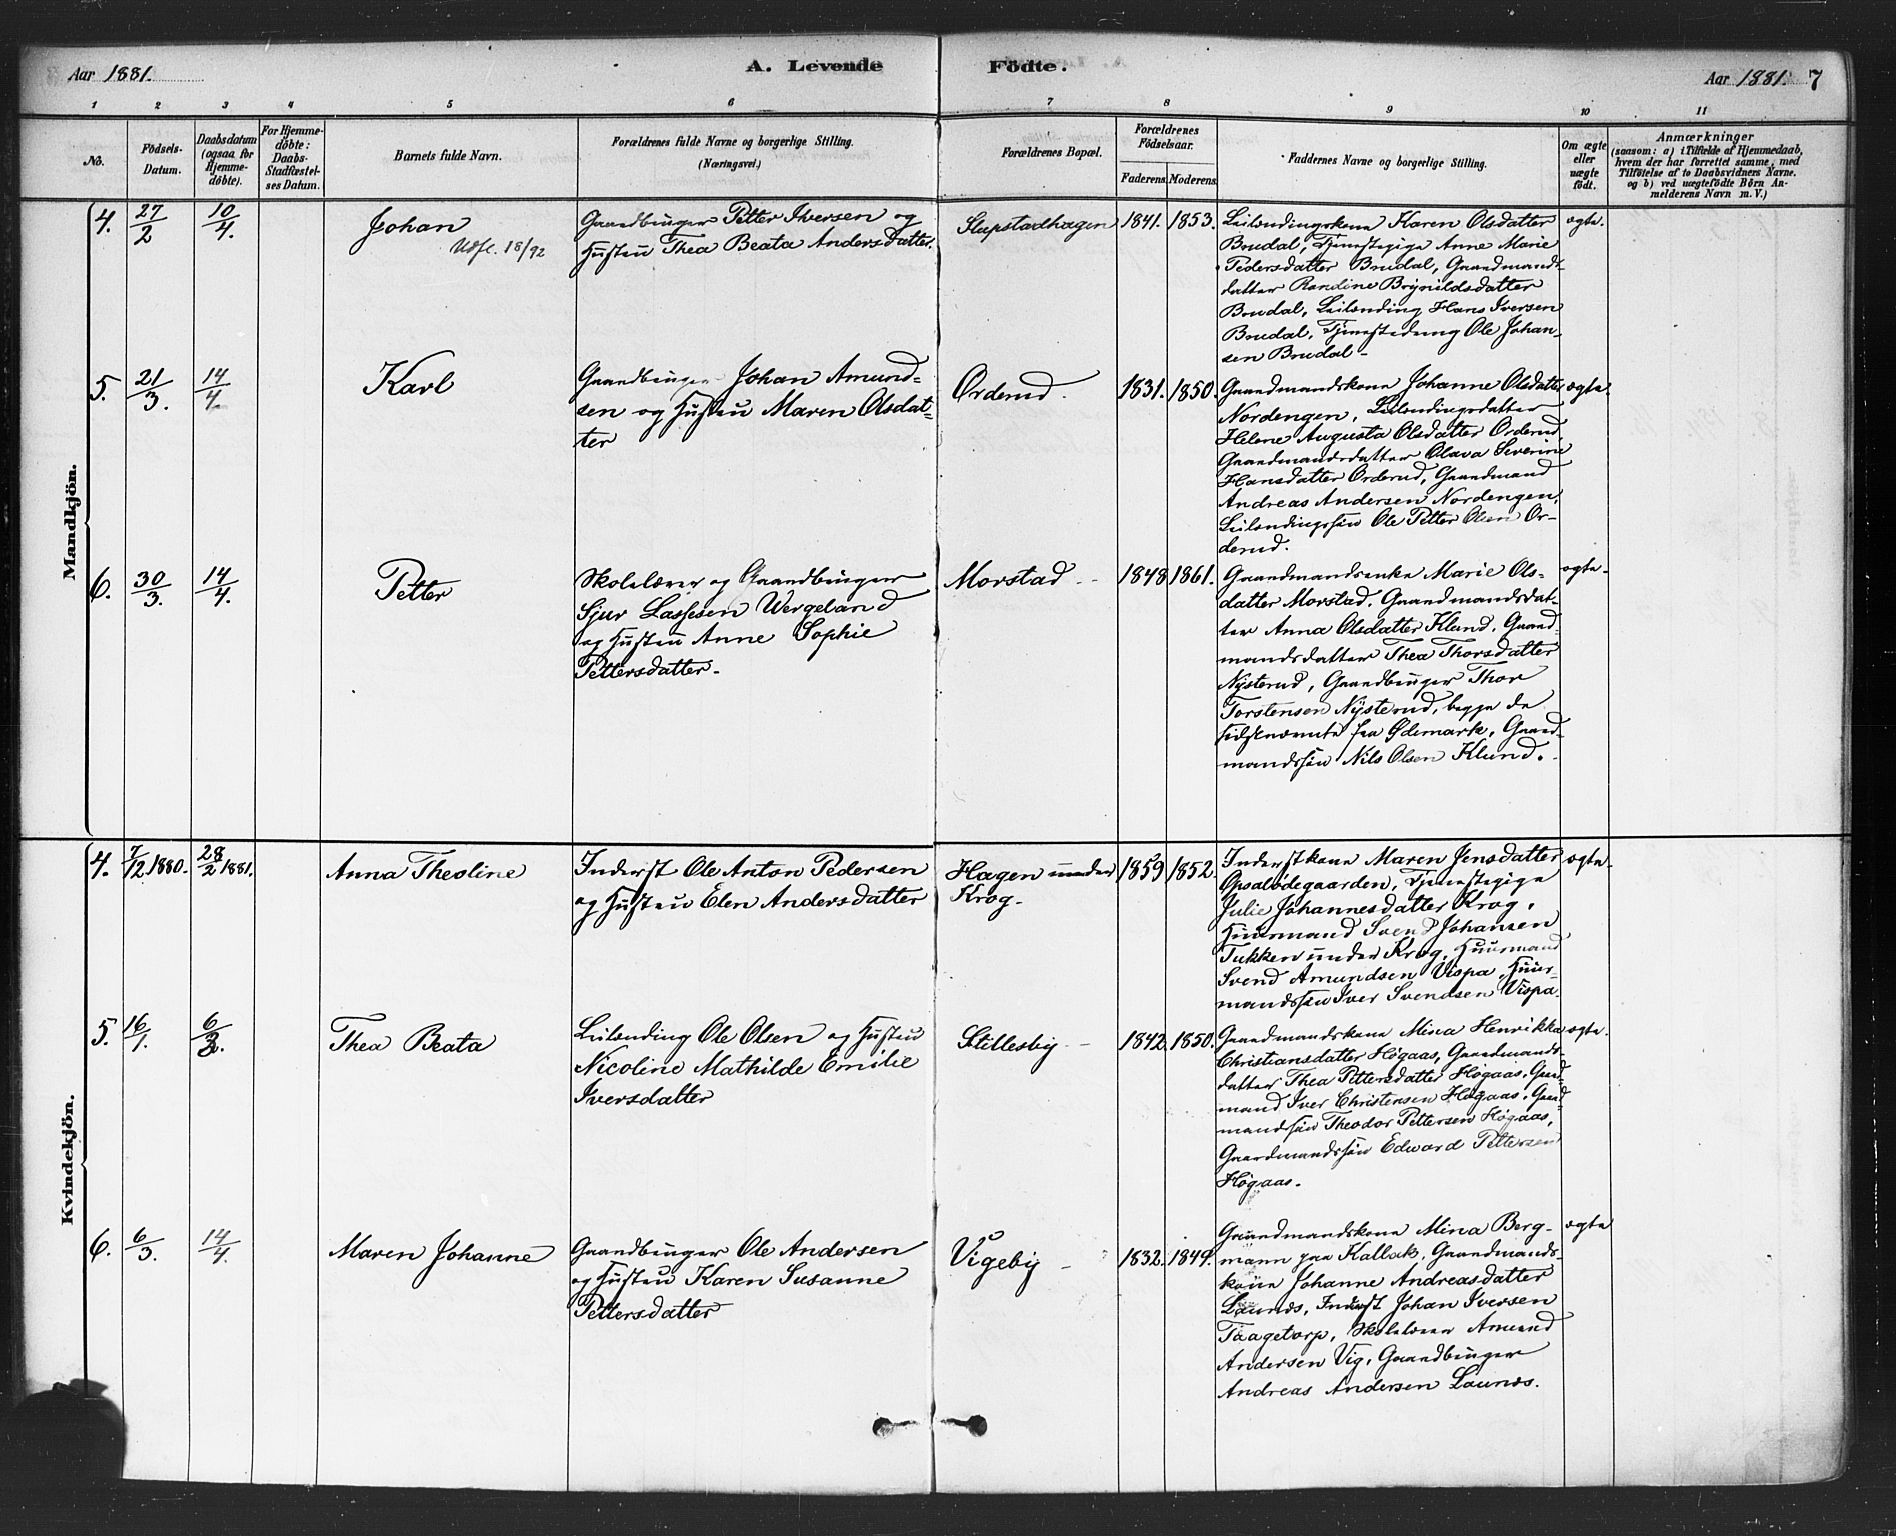 Aar 1881.
A. Levende Födte.
Aar 1881. 7
1 2 3 4 5 6 7 8 9 10 11
No.
Födsels-
Datum.
Daabsdatum
(ogsaa for
Hjemme-
döbte).
For Hjemme-
döbte:
Daabs-
Stadfæstel-
ses Datum.
Barnets fulde Navn.
Forældrenes fulde Navne og borgerlige Stilling.
(Næringsvei.)
Forældrenes Bopæl.
Forældrenes
Födselsaar.
Faderens Moderens
Faddernes Navne og borgerlige Stilling.
Om ægte
eller
uægte
födt.
Anmærkninger
(saasom: a) i Tilfælde af Hjemmedaab,
hvem der har forrettet samme, med
Tilföielse af to Daabsvidners Navne.
og b) ved uægtefödte Börn An-
melderens Navn m. V.)
Mandkjön.
4. 27/2 10/4.
Johan
Udfl. 18/92
Gaardbruger Petter Iversen og
Hustru Thea Beata Andersdatter.
Slupstadhagen 1841. 1853.
Leilændingskone Karen Olsdatter
Brudal, Tjenestepige Anne Marie
Pedersdatter Brudal, Gaardmands-
datter Randine Brynildsdatter
Brudal, Leilænding Hans Iversen
Brudal, Tjenestedreng Ole Johan-
sen Brudal.
ægte.
5. 21/3. 14/4.
Karl
Gaardbruger Johan Amund-
sen og Hustru Maren Olsdat-
ter
Orderud. 1831. 1850.
Gaardmandskone Johanne Olsdatter
Nordengen, Leilændingsdatter
Helene Augusta Olsdatter Orderud,
Gaardmandsdatter Olava Severine
Hansdatter Orderud, Gaardmand
Andreas Andersen Nordengen,
Leilændingssøn Ole Petter Olsen Or-
derud.
ægte.
6. 30/3. 14/4.
Petter
Skolelærer og Gaardbruger
Sjur Lassesen Wergeland
og Hustru Anne Sophie
Pettersdatter.
Morstad 1848 1861.
Gaardmandsenke Marie Ols-
datter Morstad, Gaardmandsdat-
ter Anna Olsdatter Klund, Gaard-
mandsdatter Thea Thorsdatter
Nysterud, Gaardbruger Thor
Torstensen Nysterud, begge de
sidstnævnte fra Ødemark, Gaard-
mandssøn Nils Olsen Klund.
ægte.
Kvindekjön.
4. 7/12 1880. 28/2 1881.
Anna Theoline
Inderst Ole Anton Pedersen
og Hustru Elen Andersdatter
Hagen under
Krog.
1859 1852.
Inderstkone Maren Jensdatter
Opsalødegaarden, Tjenestepige
Julie Johannesdatter Krog,
Huusmand Svend Johansen
Tukken under Krog, Huusmand
Svend Amundsen Vispa, Huus-
mandssøn Iver Svendsen Vispa.
ægte.
5. 16/1. 6/3.
Thea Beata
Leilænding Ole Olsen og Hustru
Nicoline Mathilde Emilie
Iversdatter
Stillesby 1842. 1850.
Gaardmandskone Mina Henrikka
Christiansdatter Høgaas, Gaardmands-
datter Thea Pettersdatter Høgaas, Gaard-
mand Iver Christensen Høgaas, Gaard-
mandssøn Theodor Pettersen Høgaas,
Gaardmandssøn Edward Pettersen
Høgaas.
ægte.
6. 6/3. 14/4.
Maren Johanne
Gaardbruger Ole Andersen
og Hustru Karen Susanne
Pettersdatter
Vigeby 1832. 1849.
Gaardmandskone Mina Berg-
mann paa Kallak, Gaardmands-
kone Johanne Andreasdatter
Launes, Inderst Johan Iversen
Taagetorp, Skolelærer Amund
Andersen Vig, Gaardbruger
Andreas Andersen Launes.
ægte